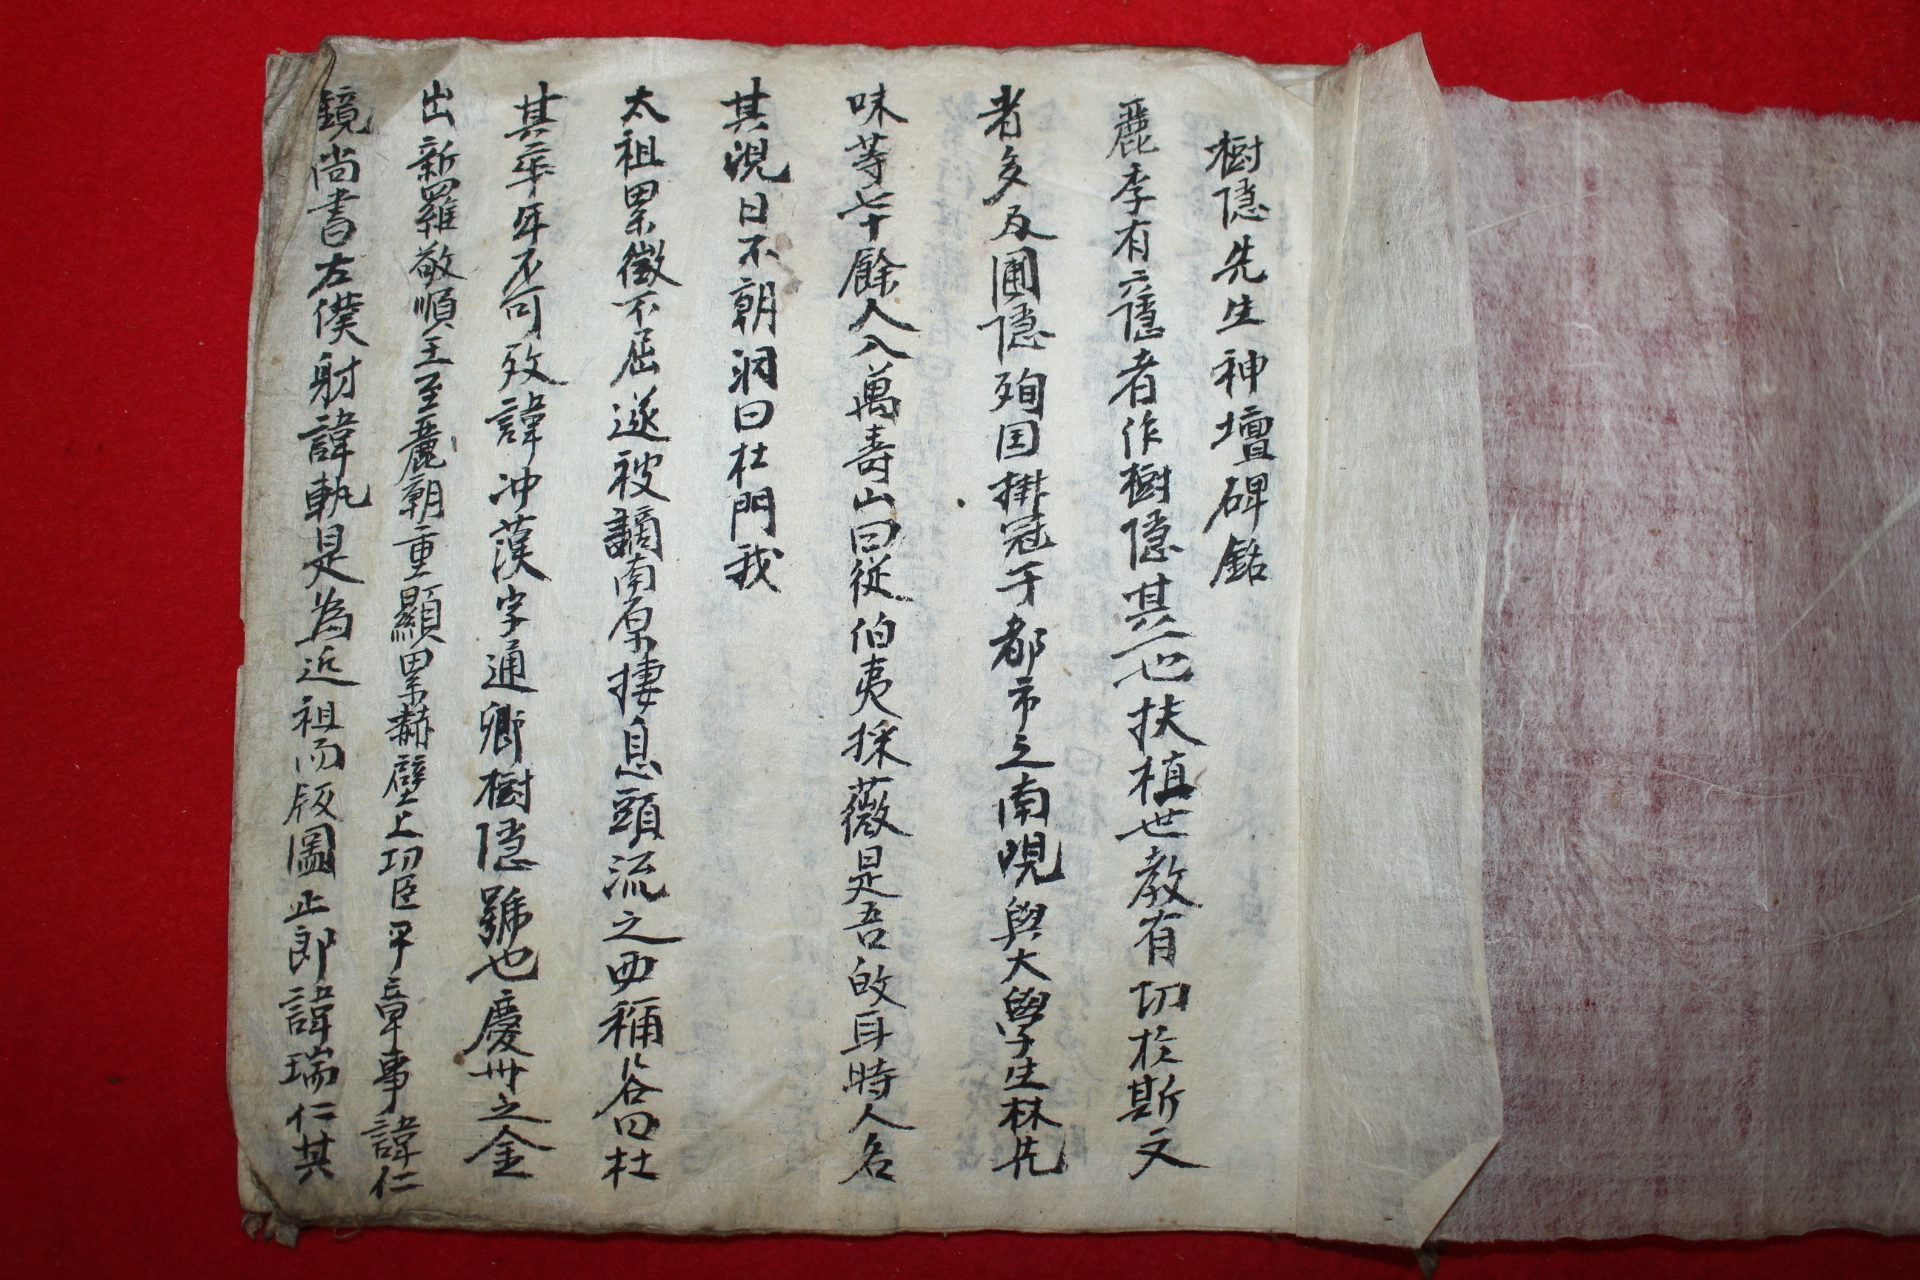 樹隱先生神壇碑銘
麗季有六隱者作樹隱其一也扶植世教有切於斯文
者多及圃隱殉国掛冠于都市之南峴與大學生林先
味等七十餘人入萬壽山曰從伯夷採薇是吾故耳時人名
其峴曰不朝洞曰杜門我
太祖累徵不屈遂被謫南原捿息頭流之西稱谷曰杜
其卒年不可攷諱冲漢字通卿樹隱號也慶州之金
出新羅敬順王至麗朝重顯累赫壁上功臣平章事諱仁
鏡尚書左僕射諱軌是為近祖而版圖正郎諱瑞仁其